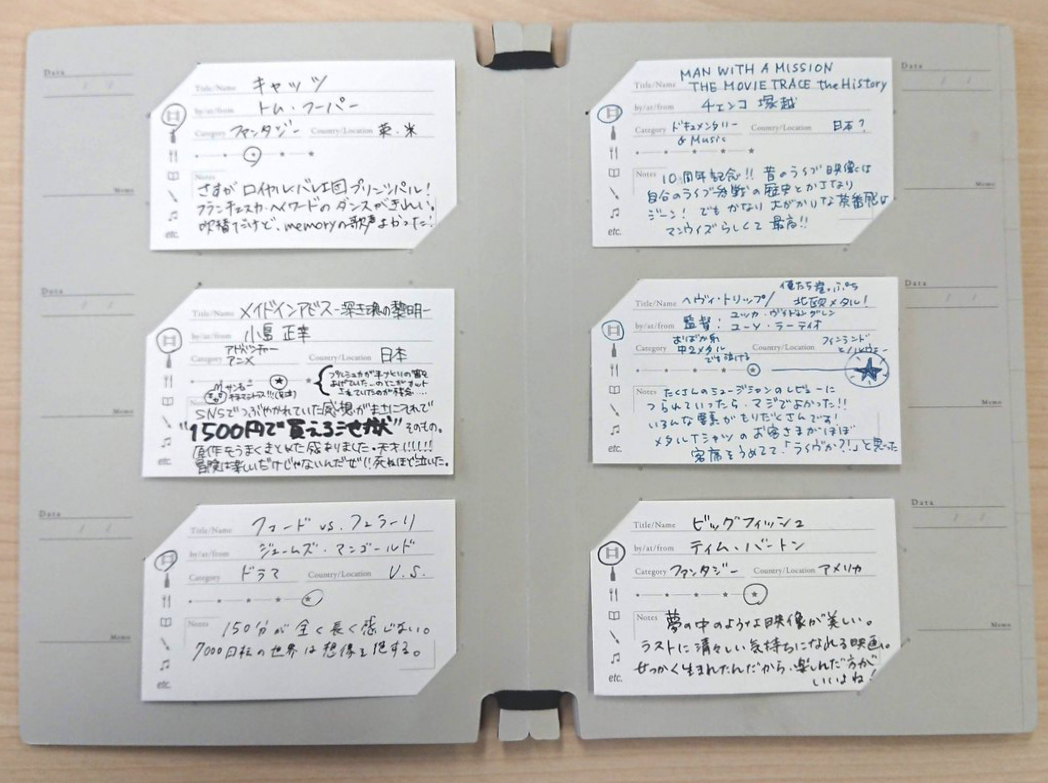 Data
Memo
Title/Name キャッツ
by/at/from トム・フーパー
Category ファンタジー Country/Location 英・米
Notes
さすがロイヤルバレエ団プリンシパル!
フランチェスカ・ヘイワードのダンスがきれい。
吹替だけど、memoryの歌声よかった!
etc.
Data
Memo
Title/Name メイドインアビス-深き魂の黎明-
by/at/from 小島 正幸
Category アドベンチャー
アニメ
Country/Location 日本
Notes
SNSでつぶやかれていた感想がまさにそれで
"1500円で買える地獄"そのもの。
原作をうまくまとめた感ありました。天才!!!!!
冒険は楽しいだけじゃないんだぜ!!死ぬほど泣いた。
etc.
Data
Memo
Title/Name フォード vs. フェラーリ
by/at/from ジェームズ・マンゴールド
Category ドラマ Country/Location U.S.
Notes
150分が全く長く感じない。
7000回転の世界は想像を絶する。
etc.
Data
Memo
MAN WITH A MISSION
Title/Name THE MOVIE TRACE the History
by/at/from チェンコ 塚越
Category ドキュメンタリー
& Music
Country/Location 日本?
Notes
10周年記念!! 昔のライブ映像は
自分のライブ参戦の歴史とかさなり
ジーン! でもかなり大がかりな茶番感は
マンウィズらしくて最高!!
etc.
Data
Memo
俺たち崖っぷち
Title/Name ヘヴィ・トリップ/ 北欧メタル!
by/at/from 監督: ユッカ・ヴィドゥグレン
ユーソ・ラーティオ
Category おバカ系
中2メタル
でも泣ける
Country/Location フィンランド
とノルウェー
Notes
たくさんのミュージシャンのレビューに
つられていったら、マジでよかった!!
いろんな要素がもりだくさんです!
メタルTシャツのお客さまがほぼ
客席をうめてて、「ライヴか?!」と思った
etc.
Data
Memo
Title/Name ビッグフィッシュ
by/at/from ティム・バートン
Category ファンタジー Country/Location アメリカ
Notes
夢の中のような映像が美しい。
ラストに清々しい気持ちになれる映画。
せっかく生まれたんだから、楽しんだ方が
いいよね!
etc.